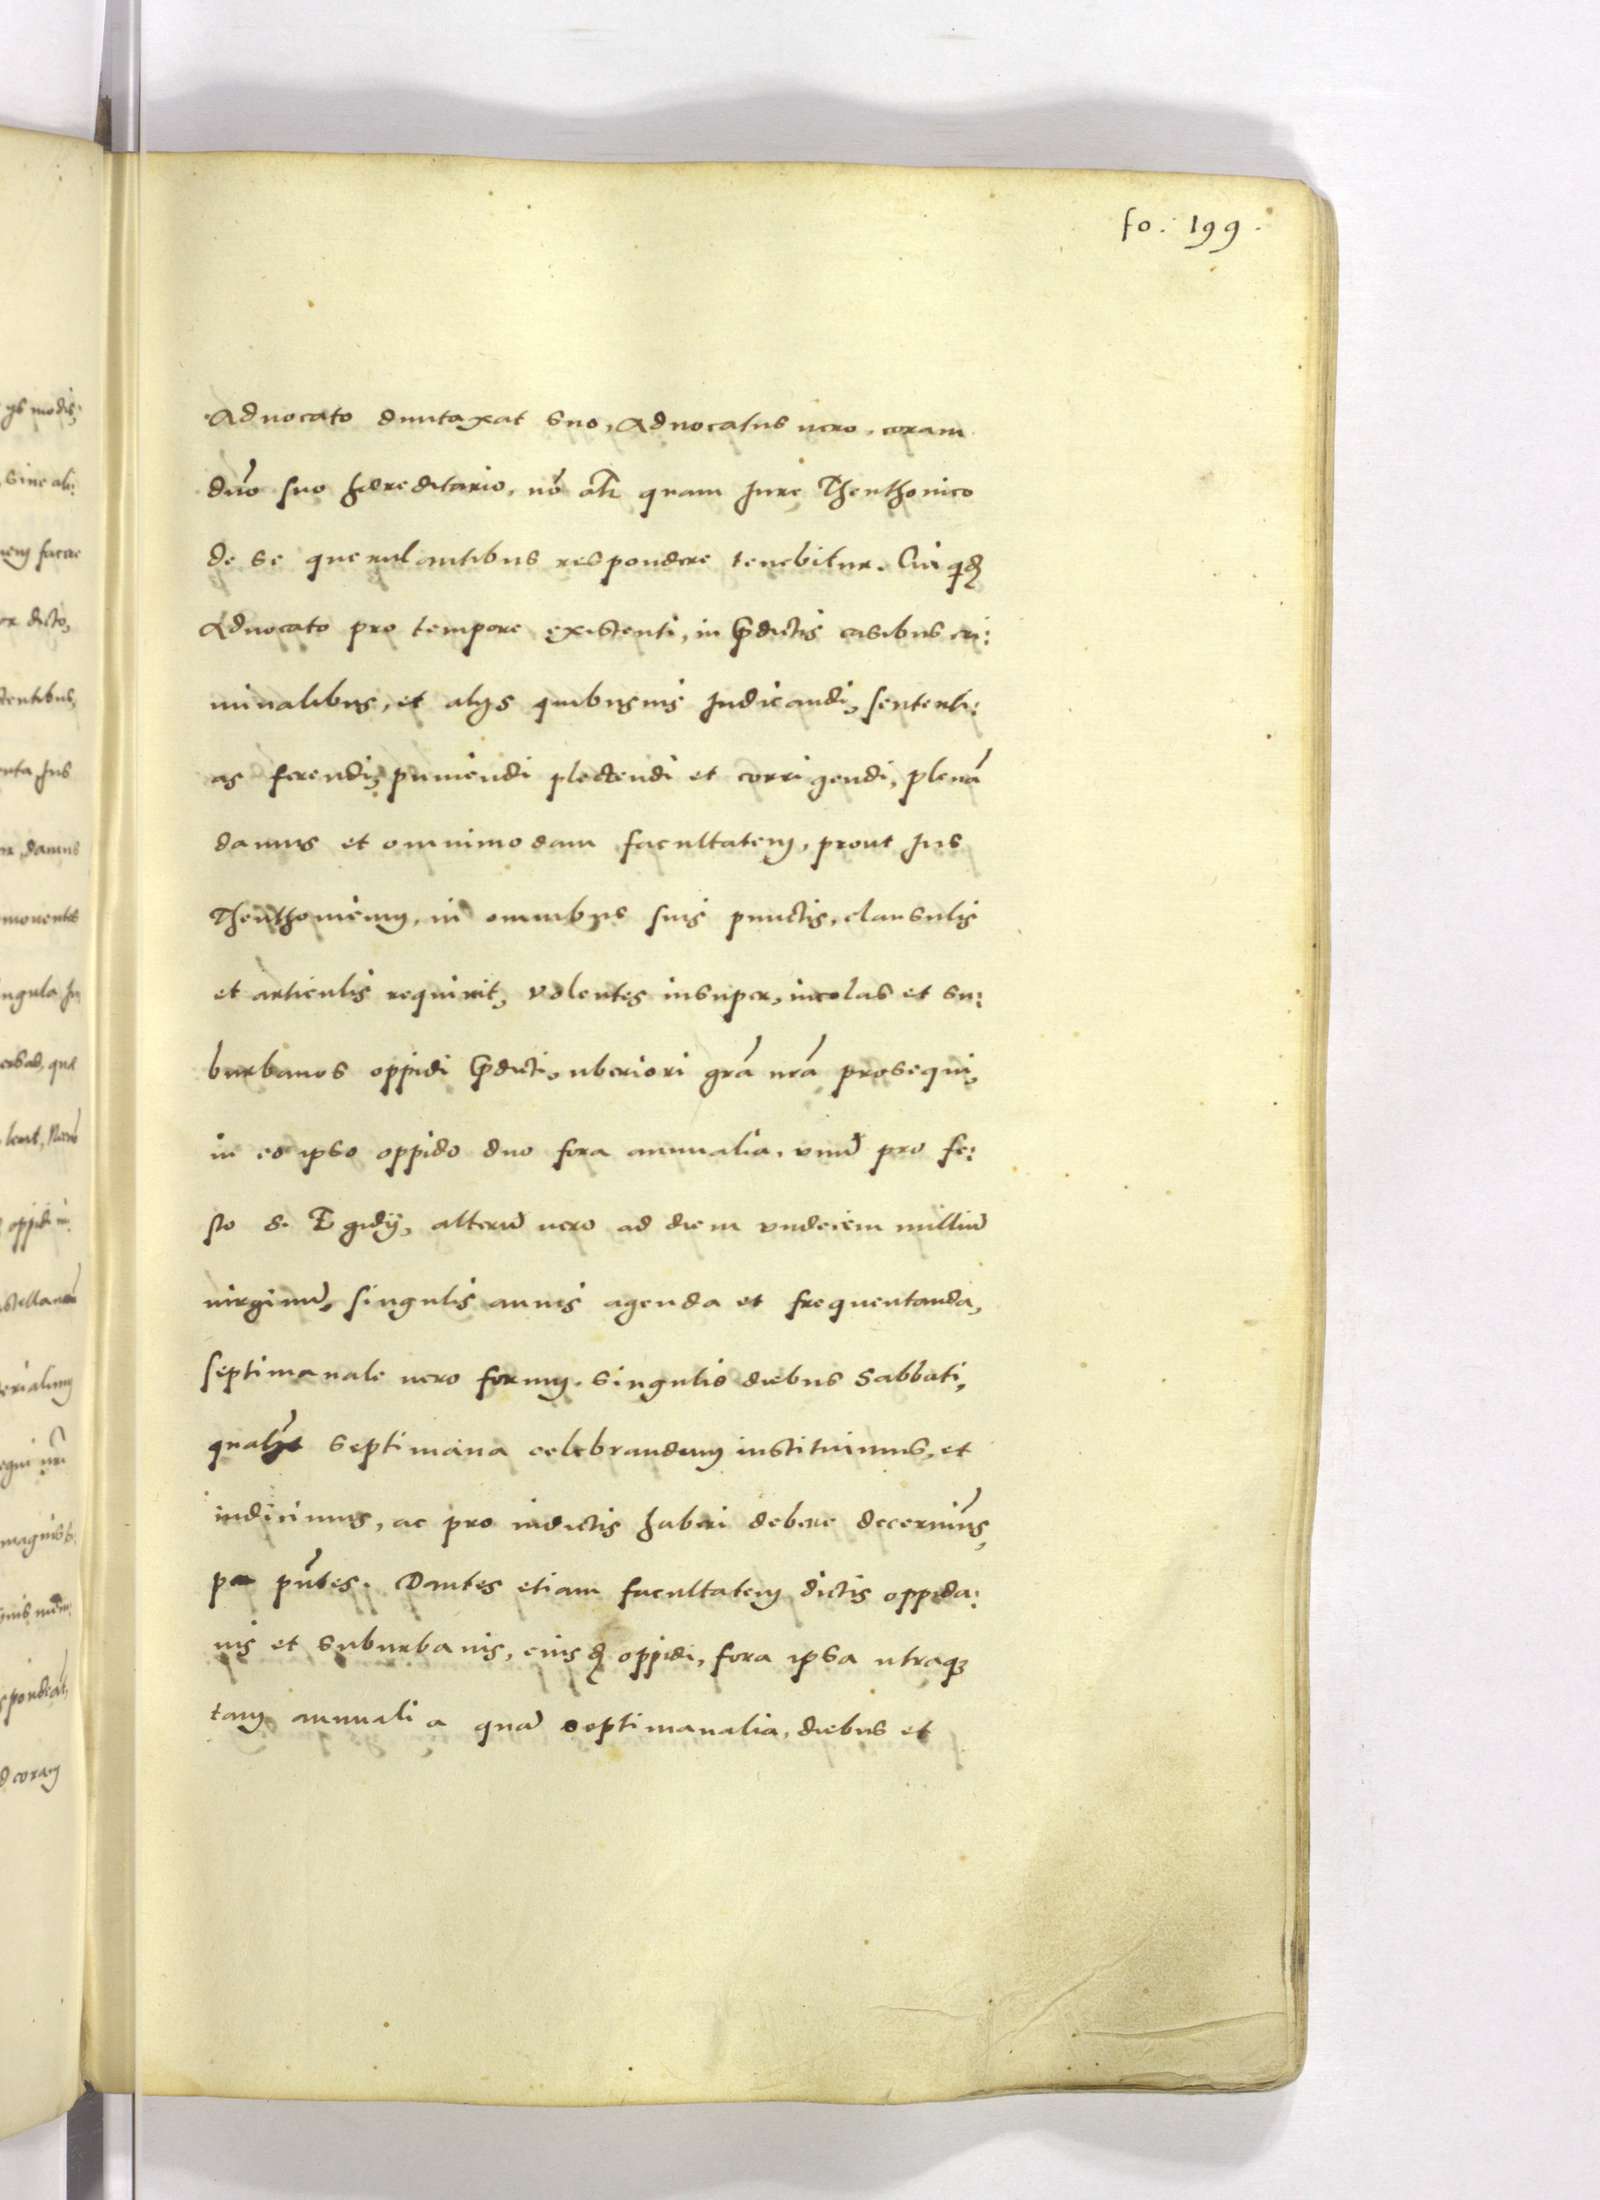 fo: 199.
Aduocato duntaxat suo, Aduocatus uero, coram
dn̄o suo hæreditario, nō alr̄ quam Jure Theuthonico
de se querulantibus respondere tenebitur. Cui qd̄
Aduocato pro tempore existenti, in p̄dictis casibus cri:
minalibus, et alijs quibusuis Judicandi, sententi:
as ferendi, puniendi plectendi et corrigendi, plenā
damus et omnimodam facultatem, prout Jus
Theuthonicum, in omnibus suis punctis, clausulis
et articulis requirit, Volentes insuper, incolas et su:
burbanos oppidi p̄dicti, uberiori grā nrā prosequi,
in eo ipso oppido duo fora annualia, vnū pro fe:
sto S. Egidij, alterū uero ad diem vndecim milliū
uirginū, singulis annis agenda et frequentanda,
septimanale uero forum, singulis diebus Sabbati,
qualt septimana celebrandum instituimus, et
indicimus, ac pro indictis haberi debere decernim̄s,
p pn̄tes. Dantes etiam facultatem dictis oppida:
nis et suburbanis, eiusd̄ oppidi, fora ipsa utraq3
tam annualia quā septimanalia, diebus et
gs modis,
sine ali:
facere
dicto,
Jus
damus
ngula
quæ
oppidi
coram